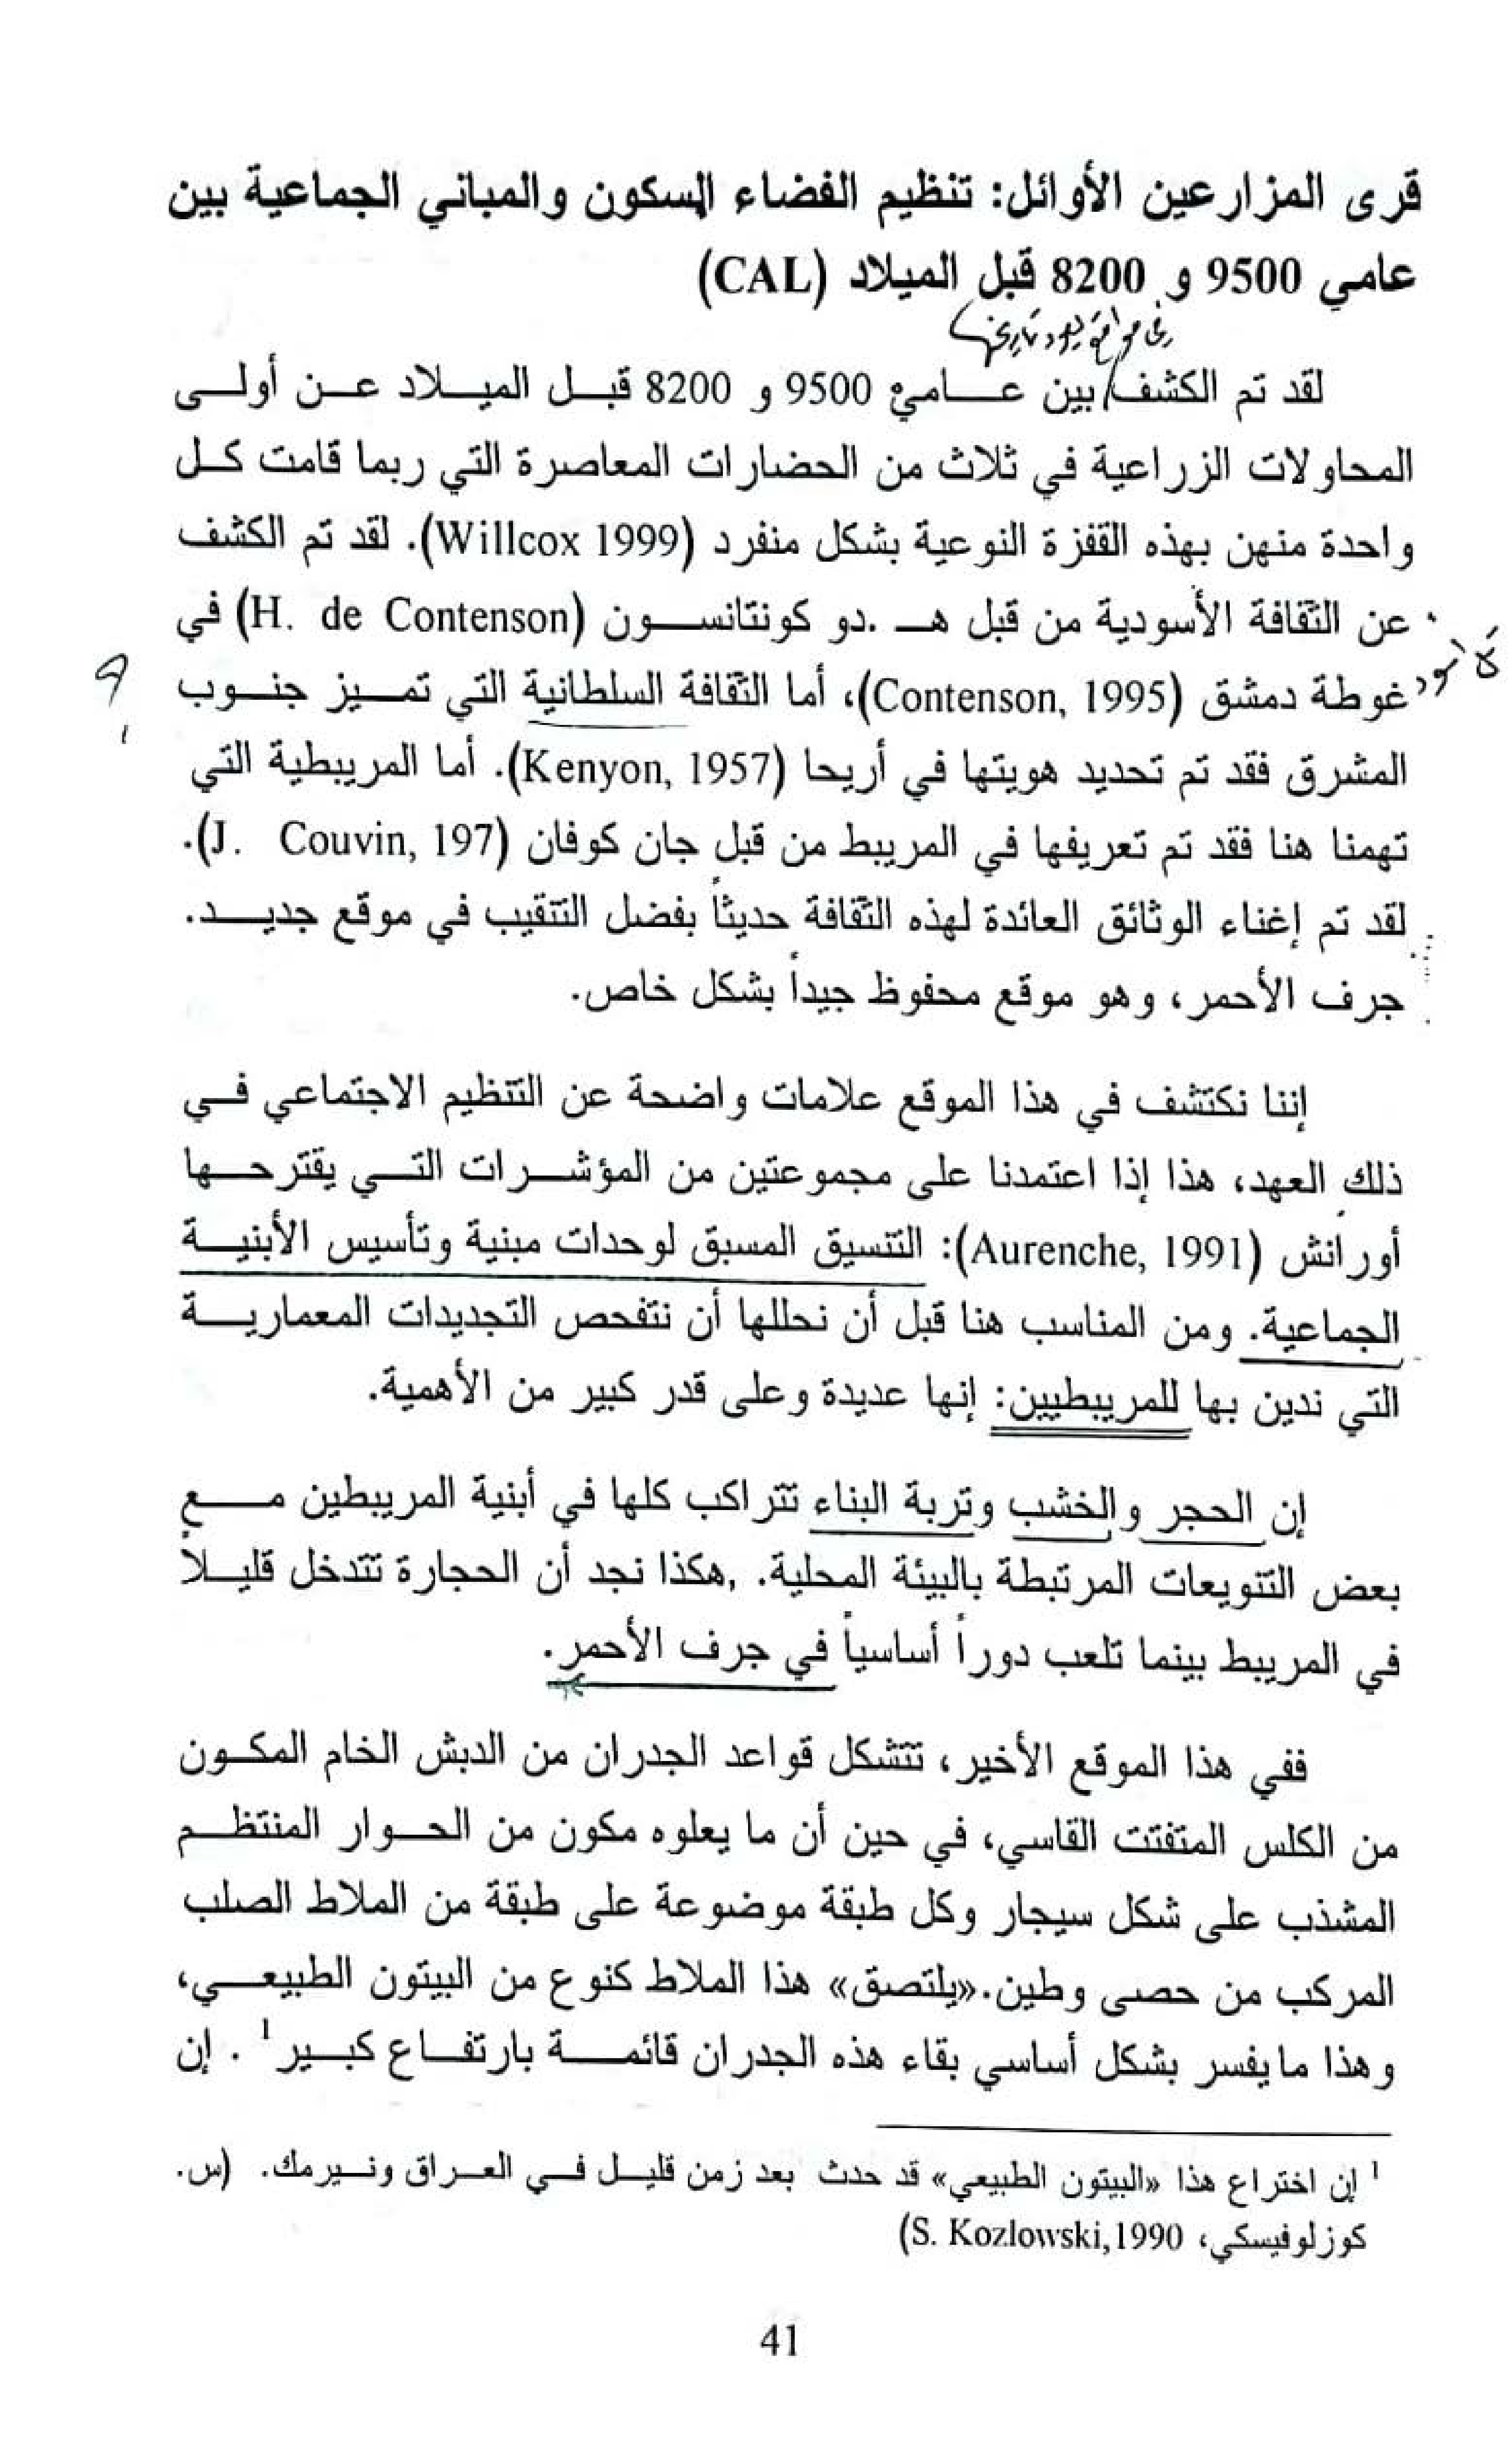 قرى المزارعين الأوائل: تنظيم الفضاء السكون والمباني الجماعية بين
عامي 9500 و 8200 قبل الميلاد (CAL)
لقد تم الكشف بين عامي 9500 و 8200 قبل الميلاد عن أولى
المحاولات الزراعية في ثلاث من الحضارات المعاصرة التي ربما قامت كل
واحدة منهن بهذه القفزة النوعية بشكل منفرد (Willcox 1999). لقد تم الكشف
عن الثقافة الأسودية من قبل هـ .دو كونتانسون (H. de Contenson) في
غوطة دمشق (Contenson, 1995)، أما الثقافة السلطانية التي تميز جنوب
المشرق فقد تم تحديد هويتها في أريحا (Kenyon, 1957). أما المريبطية التي
تهمنا هنا فقد تم تعريفها في المريبط من قبل جان كوفان (J. Couvin, 197).
لقد تم إغناء الوثائق العائدة لهذه الثقافة حديثاً بفضل التنقيب في موقع جديد.
جرف الأحمر، وهو موقع محفوظ جيداً بشكل خاص.
إننا نكتشف في هذا الموقع علامات واضحة عن التنظيم الاجتماعي في
ذلك العهد، هذا إذا اعتمدنا على مجموعتين من المؤشرات التي يقترحها
أورانش (Aurenche, 1991): التنسيق المسبق لوحدات مبنية وتأسيس الأبنية
الجماعية. ومن المناسب هنا قبل أن نحللها أن نتفحص التجديدات المعمارية
التي ندين بها للمريبطيين: إنها عديدة وعلى قدر كبير من الأهمية.
إن الحجر والخشب وتربة البناء تتراكب كلها في أبنية المريبطين مع
بعض التنويعات المرتبطة بالبيئة المحلية. ,هكذا نجد أن الحجارة تتدخل قليلاً
في المريبط بينما تلعب دوراً أساسياً في جرف الأحمر.
ففي هذا الموقع الأخير، تتشكل قواعد الجدران من الدبش الخام المكون
من الكلس المتفتت القاسي، في حين أن ما يعلوه مكون من الحوار المنتظم
المشذب على شكل سيجار وكل طبقة موضوعة على طبقة من الملاط الصلب
المركب من حصى وطين.«يلتصق» هذا الملاط كنوع من البيتون الطبيعي،
وهذا ما يفسر بشكل أساسي بقاء هذه الجدران قائمة بارتفاع كبير1 . إن
1 إن اختراع هذا «البيتون الطبيعي» قد حدث بعد زمن قليل في العراق ونيرمك. (س.
كوزلوفيسكي، S. Kozlowski,1990)
41